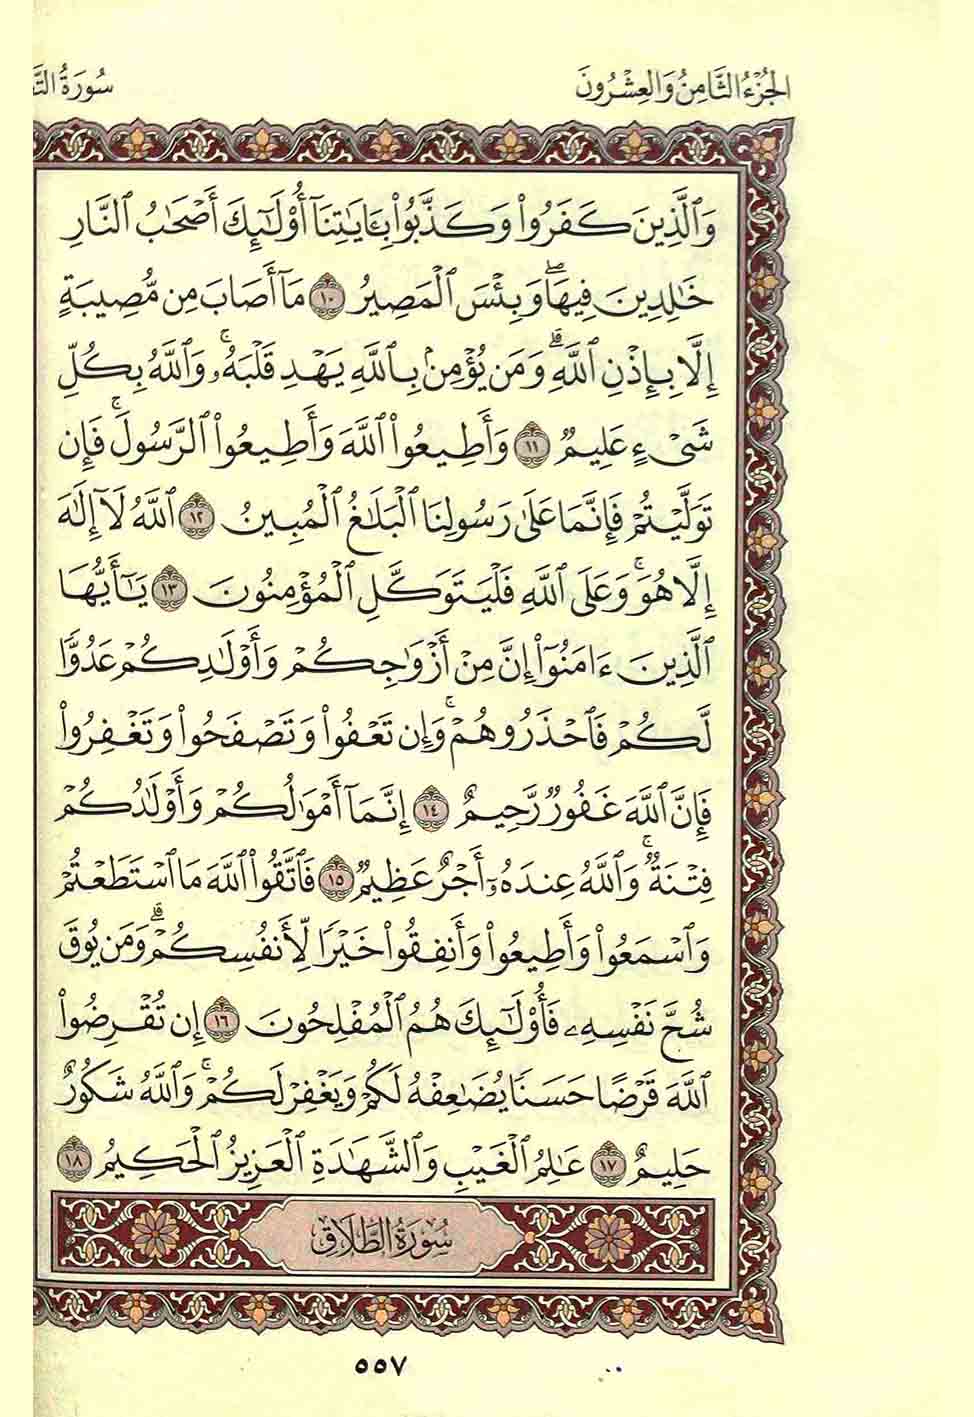 الجُزْءُ الثَّامِنُ وَالعِشْرُونَ
سُورَةُ التَّ
وَٱلَّذِينَ كَفَرُوا۟ وَكَذَّبُوا۟ بِـَٔايَـٰتِنَآ أُو۟لَـٰٓئِكَ أَصْحَـٰبُ ٱلنَّارِ
خَـٰلِدِينَ فِيهَا ۖ وَبِئْسَ ٱلْمَصِيرُ ١٠ مَآ أَصَابَ مِن مُّصِيبَةٍ
إِلَّا بِإِذْنِ ٱللَّهِ ۗ وَمَن يُؤْمِنۢ بِٱللَّهِ يَهْدِ قَلْبَهُۥ ۚ وَٱللَّهُ بِكُلِّ
شَىْءٍ عَلِيمٌ ١١ وَأَطِيعُوا۟ ٱللَّهَ وَأَطِيعُوا۟ ٱلرَّسُولَ ۚ فَإِن
تَوَلَّيْتُمْ فَإِنَّمَا عَلَىٰ رَسُولِنَا ٱلْبَلَـٰغُ ٱلْمُبِينُ ١٢ ٱللَّهُ لَآ إِلَـٰهَ
إِلَّا هُوَ ۚ وَعَلَى ٱللَّهِ فَلْيَتَوَكَّلِ ٱلْمُؤْمِنُونَ ١٣ يَـٰٓأَيُّهَا
ٱلَّذِينَ ءَامَنُوٓا۟ إِنَّ مِنْ أَزْوَٰجِكُمْ وَأَوْلَـٰدِكُمْ عَدُوًّا
لَّكُمْ فَٱحْذَرُوهُمْ ۚ وَإِن تَعْفُوا۟ وَتَصْفَحُوا۟ وَتَغْفِرُوا۟
فَإِنَّ ٱللَّهَ غَفُورٌ رَّحِيمٌ ١٤ إِنَّمَآ أَمْوَٰلُكُمْ وَأَوْلَـٰدُكُمْ
فِتْنَةٌ ۚ وَٱللَّهُ عِندَهُۥٓ أَجْرٌ عَظِيمٌ ١٥ فَٱتَّقُوا۟ ٱللَّهَ مَا ٱسْتَطَعْتُمْ
وَٱسْمَعُوا۟ وَأَطِيعُوا۟ وَأَنفِقُوا۟ خَيْرًا لِّأَنفُسِكُمْ ۗ وَمَن يُوقَ
شُحَّ نَفْسِهِۦ فَأُو۟لَـٰٓئِكَ هُمُ ٱلْمُفْلِحُونَ ١٦ إِن تُقْرِضُوا۟
ٱللَّهَ قَرْضًا حَسَنًا يُضَـٰعِفْهُ لَكُمْ وَيَغْفِرْ لَكُمْ ۚ وَٱللَّهُ شَكُورٌ
حَلِيمٌ ١٧ عَـٰلِمُ ٱلْغَيْبِ وَٱلشَّهَـٰدَةِ ٱلْعَزِيزُ ٱلْحَكِيمُ ١٨
سُورَةُ الطَّلَاقِ
٥٥٧